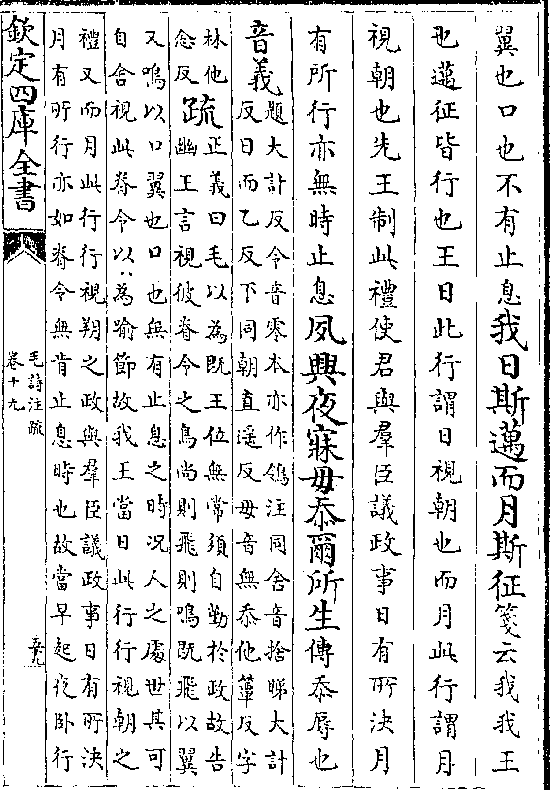 翼也口也不有止息我日斯邁而月斯征箋云我我王
也邁征皆行也王日此行謂日視朝也而月此行謂月
視朝也先王制此禮使君與羣臣議政事日有所決月
有所行亦無時止息夙興夜寐毋忝爾所生傳忝辱也
音義題大計反令音零本亦作鴒注同舍音捨睇大計
反日而乙反下同朝直遥反毋音無忝他簟反字
林他
念反疏正義曰毛以為既王位無常須自勤於政故告
幽王言視彼脊令之鳥尚則飛則鳴既飛以翼
又鳴以口翼也口也無有止息之時況人之處世其可
自舍視此脊令以為喻節故我王當日此行行視朝之
禮又而月此行行視朔之政與羣臣議政事日有所決
月有所行亦如脊令無肯止息時也故當早起夜卧行
欽定四庫全書
毛詩注疏
卷十九
五十九